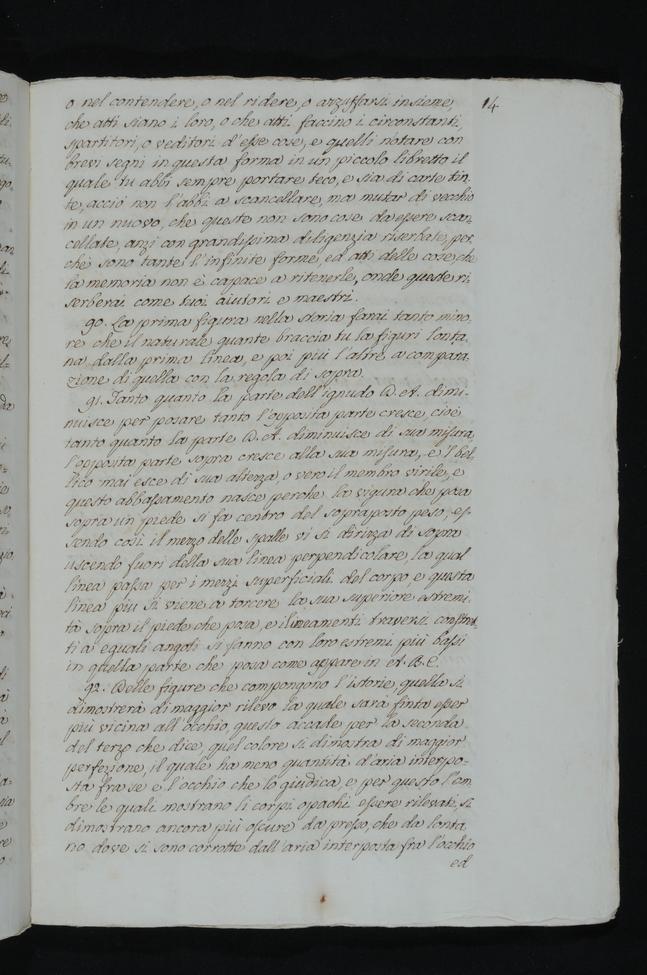 14
o nel contendere, o nel ridere, o azzuffarsi insieme,
che atti siano i loro, o che atti faccino i circonstanti,
spartitori, o veditori d'esse cose, e quelli notare con
brevi segni in questa forma in un piccolo libretto il
quale tu abbi sempre portare teco, e sia di carte tin,
te, acciò non l'abbi a scancellare, ma mutar di vecchio
in un nuovo, che queste non sono cose da essere scan,
cellate, anzi con grandissima diligenzia riserbate, per,
che sono tante l'infinite forme, ed atti delle cose, che
la memoria non è capace a ritenerle, onde queste ri,
serberai come tuoi aiutori e maestri.
90. La prima figura nella storia farai tanto mino,
re che il naturale quante braccia tu la figuri lonta,
na dalla prima linea, e poi più l'altre a compara,
zione di quella con la regola di sopra.
91. Tanto quanto la parte dell'ignudo D. A. dimi-
nuisce per posare tanto l'opposita parte cresce, cioè
tanto quanto la parte D. A. diminuisce di sua misura,
l'opposita parte sopra cresce alla sua misura, e 'l bel,
lico mai esce di sua altezza, o vero il membro virile, e
questo abbassamento nasce perche la vigura che posa
sopra un piede si fa centro del sopraposto peso, es,
sendo così il mezzo delle spalle vi si dirizza di sopra
uscendo fuori della sua linea perpendicolare, la qual
linea passa per i mezzi superficiali del corpo, e questa
linea più si viene a torcere la sua superiore estremi,
tà sopra il piede che posa, e i lineamenti traversi constret,
ti a equali angoli si fanno con loro estremi più bassi
in quella parte che posa come appare in A. B. C.
92. Delle figure che compongono l'istorie, quella si
dimostrerà di maggior rilevo la quale sarà finta esser
più vicina all'occhio, questo accade per la seconda
del terzo che dice, quel colore si dimostra di maggior
perfezione, il quale ha meno quantità d'aria interpo-
sta fra se e l'occhio che lo giudica, e per questo l'om,
bre le quali mostrano li corpi opachi essere rilevati, si
dimostrano ancora più oscure da presso, che da lonta,
no dove si sono corrotte dall'aria interposta fra l'occhio
ed